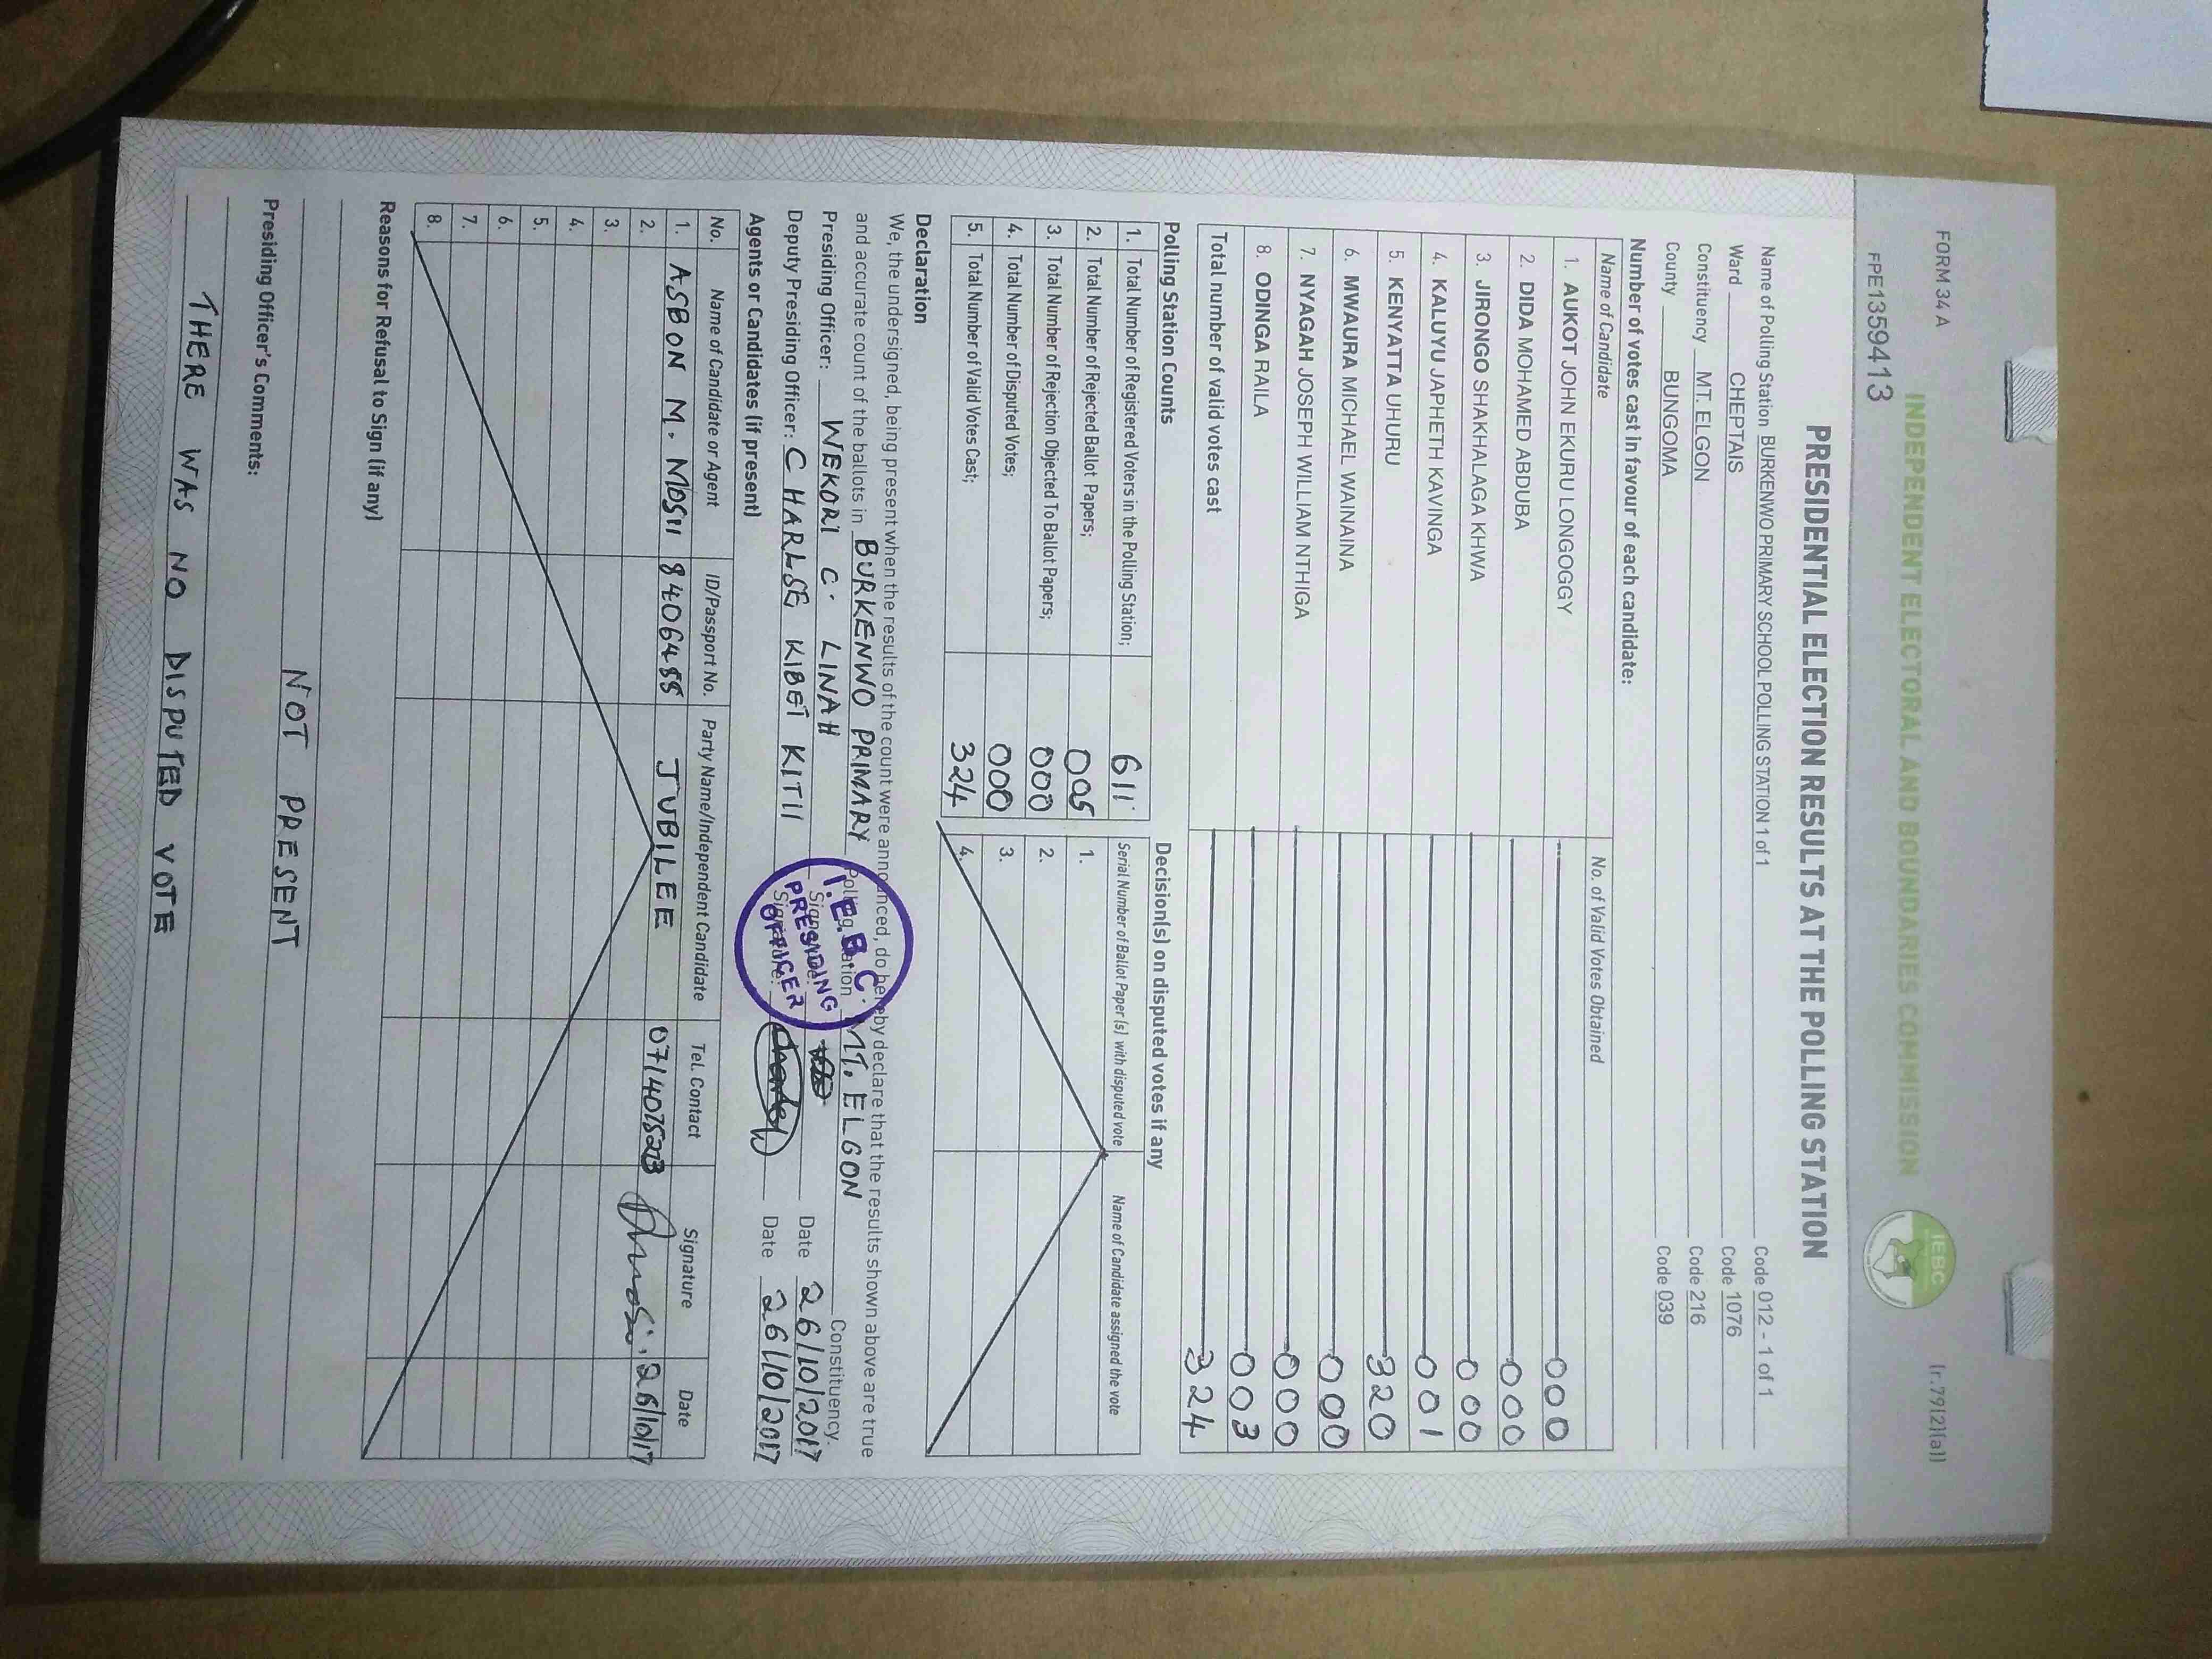 FORM 34 A
(r.79(2)(a))
INDEPENDENT ELECTORAL AND BOUNDARIES COMMISSION
IEBC
FPE1359413
PRESIDENTIAL ELECTION RESULTS AT THE POLLING STATION
Name of Polling Station BURKENWO PRIMARY SCHOOL POLLING STATION 1 of 1 Code 012 - 1 of 1
Ward CHEPTAIS Code 1076
Constituency MT. ELGON Code 216
County BUNGOMA Code 039
Number of votes cast in favour of each candidate:
Name of Candidate No. of Valid Votes Obtained
1. AUKOT JOHN EKURU LONGOGGY 000
2. DIDA MOHAMED ABDUBA 000
3. JIRONGO SHAKHALAGA KHWA 000
4. KALUYU JAPHETH KAVINGA 001
5. KENYATTA UHURU 320
6. MWAURA MICHAEL WAINAINA 000
7. NYAGAH JOSEPH WILLIAM NTHIGA 000
8. ODINGA RAILA 003
Total number of valid votes cast 324
Polling Station Counts
1. Total Number of Registered Voters in the Polling Station; 611
2. Total Number of Rejected Ballot Papers; 005
3. Total Number of Rejection Objected To Ballot Papers; 000
4. Total Number of Disputed Votes; 000
5. Total Number of Valid Votes Cast; 324
Decision(s) on disputed votes if any
Serial Number of Ballot Paper(s) with disputed vote Name of Candidate assigned the vote
1.
2.
3.
4.
Declaration
We, the undersigned, being present when the results of the count were announced, do hereby declare that the results shown above are true
and accurate count of the ballots in BURKENWO PRIMARY Polling Station MT. ELGON Constituency.
Presiding Officer: WEKORI C. LINAH Signature: Date 26/10/2017
Deputy Presiding Officer: CHARLSE KIBET KITII Signature: Date 26/10/2017
I.E.B.C.
PRESIDING
OFFICER
Agents or Candidates (if present)
No. Name of Candidate or Agent ID/Passport No. Party Name/Independent Candidate Tel. Contact Signature Date
1. ASBON M. MOSII JUBILEE 26/10/17
2.
3.
4.
5.
6.
7.
8.
Reasons for Refusal to Sign (if any)
NOT PRESENT
Presiding Officer's Comments:
THERE WAS NO DISPUTED VOTE